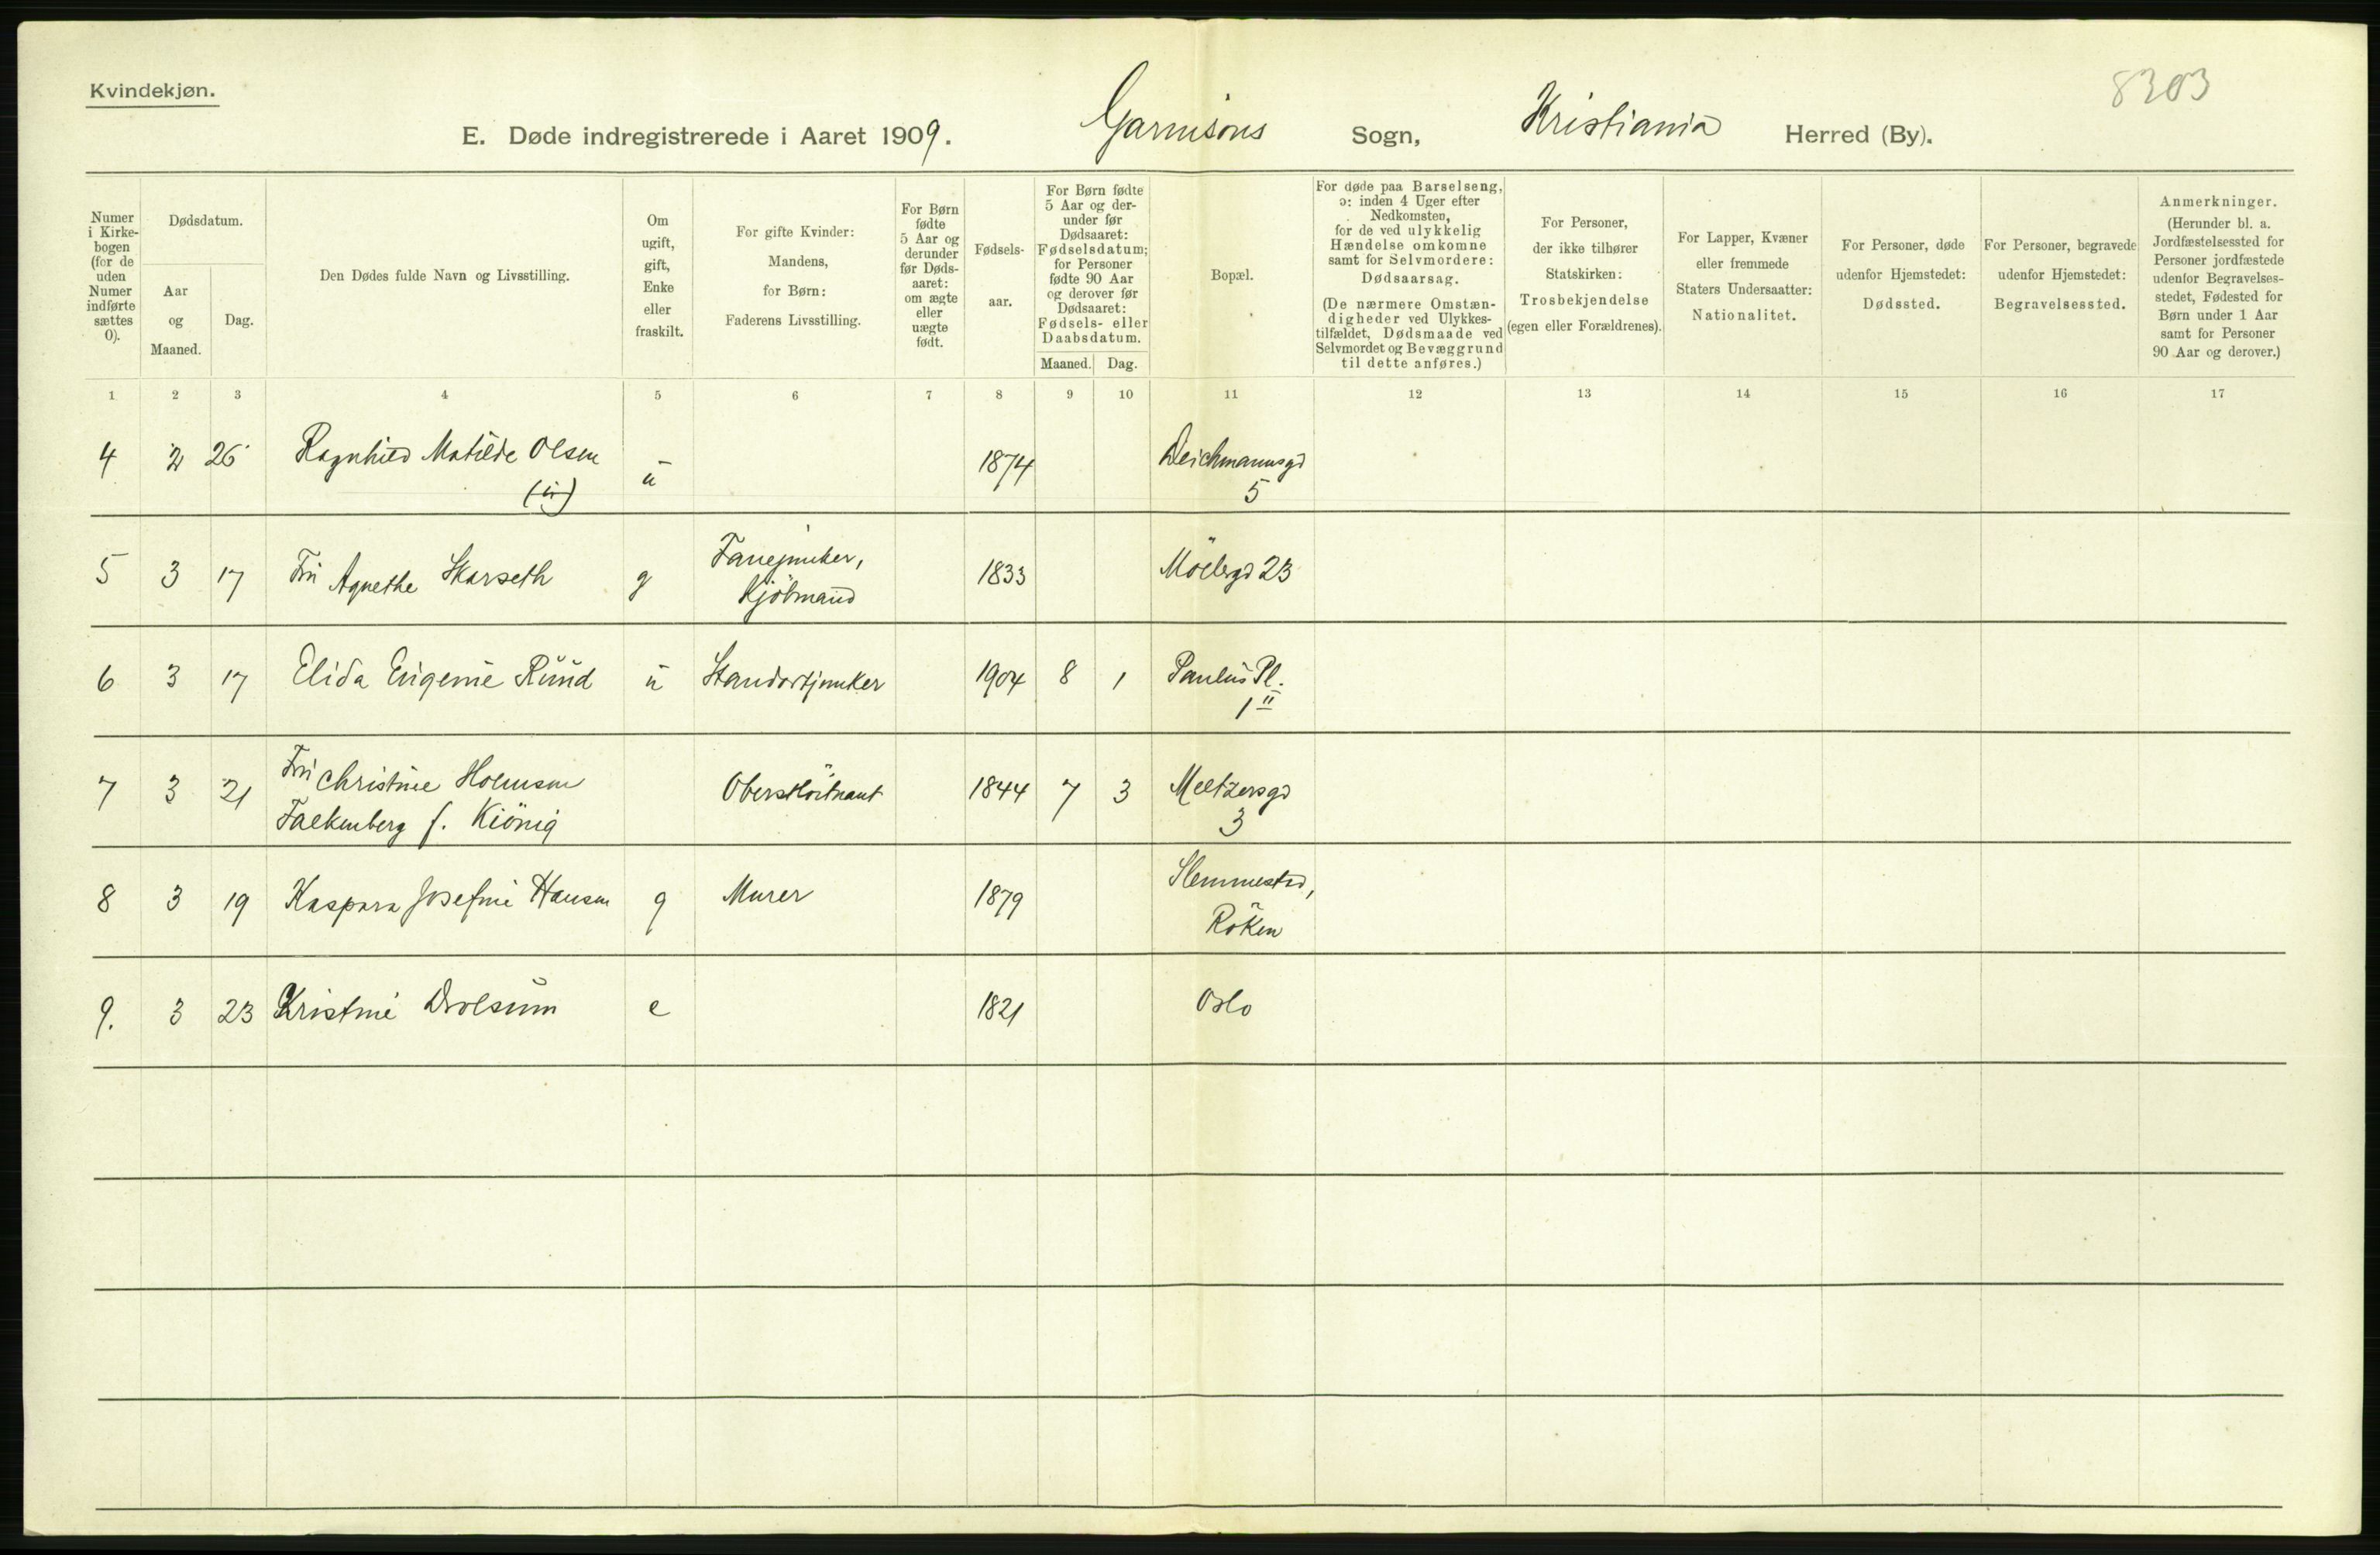 Kvindekjøn.
8303
E. Døde indregistrerede i Aaret 1909. Garnisons Sogn, Kristiania Herred (By).
Numer i Kirke-bogen (for de uden Numer indførte sættes 0).
Dødsdatum.
Aar og Maaned.
Dag.
Den Dødes fulde Navn og Livsstilling.
Om ugift, gift, Enke eller fraskilt.
For gifte Kvinder: Mandens, for Børn: Faderens Livsstilling.
For Børn fødte 5 Aar og derunder før Døds-aaret: om ægte eller uægte født.
Fødsels-aar.
For Børn fødte 5 Aar og der-under før Dødsaaret: Fødselsdatum; for Personer fødte 90 Aar og derover før Dødsaaret: Fødsels- eller Daabsdatum.
Maaned. Dag.
Bopæl.
For døde paa Barselseng, ɔ: inden 4 Uger efter Nedkomsten, for de ved ulykkelig Hændelse omkomne samt for Selvmordere: Dødsaarsag. (De nærmere Omstæn-digheder ved Ulykkes-tilfældet, Dødsmaade ved Selvmordet og Bevæggrund til dette anføres.)
For Personer, der ikke tilhører Statskirken: Trosbekjendelse (egen eller Forældrenes).
For Lapper, Kvæner eller fremmede Staters Undersaatter: Nationalitet.
For Personer, døde udenfor Hjemstedet: Dødssted.
For Personer, begravede udenfor Hjemstedet: Begravelsessted.
Anmerkninger. (Herunder bl. a. Jordfæstelsessted for Personer jordfæstede udenfor Begravelses-stedet, Fødested for Børn under 1 Aar samt for Personer 90 Aar og derover.)
1 2 3 4 5 6 7 8 9 10 11 12 13 14 15 16 17
4 2 26 Ragnhild Matilde Olsen u 1874 Deichmannsgd
(u) 5
5 3 17 Fru Agnethe Skarseth g Fanejunker, 1833 Möllergd 23
Kjöbmand
6 3 17 Elida Eugenie Ruud u Standartjunker 1904 8 1 Paulus Pl.
1 II
7 3 21 Fru Christine Holmsen Oberstlöitnant 1844 7 3 Meltzersgd
Falkenberg f. Kiönig 3
8 3 19 Kaspara Josefine Hansen g Murer 1879 Slemmestad,
Röken
9. 3 23 Kristine Drolsum e 1821 Oslo